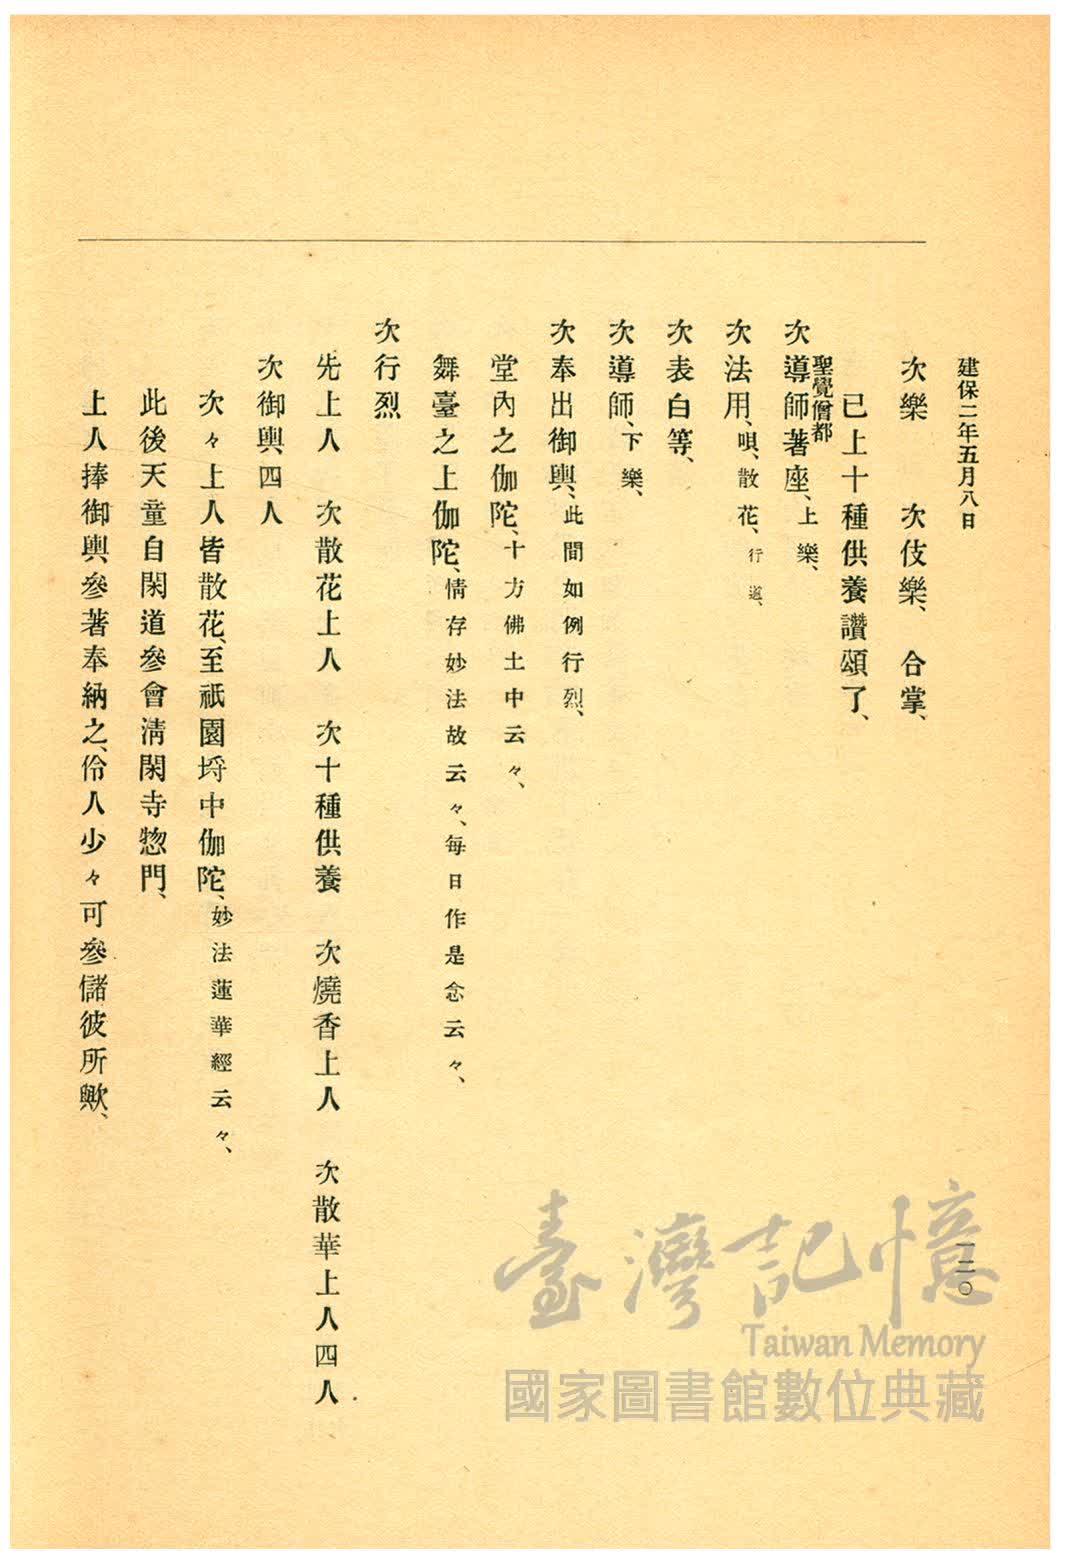 建保二年五月八日
一二〇
次樂　次伎樂、合掌、
已上十種供養讃頌了、
聖覺僧都
次導師著座、上樂、
次法用、唄、散花、行道、
次表白等、
次導師、下樂、
次奉出御輿、此間如例行烈、
堂內之伽陀、十方佛土中云々、
舞臺之上伽陀、情存妙法故云々、每日作是念云々、
次行烈
先上人　次散花上人　次十種供養　次燒香上人　次散華上人四人
次御輿、四人
次々上人皆散花、至祇園埒中伽陀、妙法蓮華經云々、
此後天童自閑道參會淸閑寺惣門、
上人捧御輿、參著奉納之、伶人少々可參儲彼所歟、
臺灣記憶
Taiwan Memory
國家圖書館數位典藏